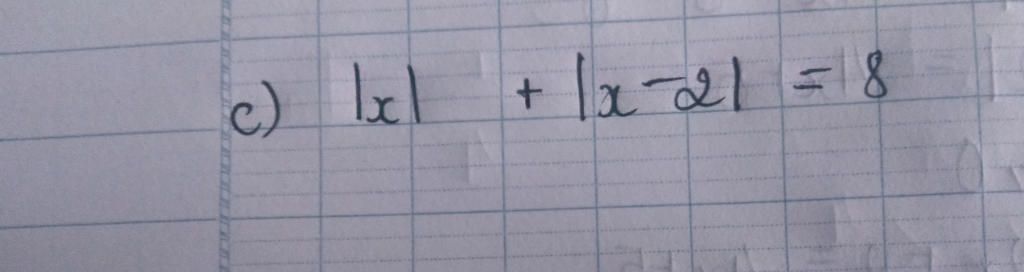 c) |x| + |x-2| = 8